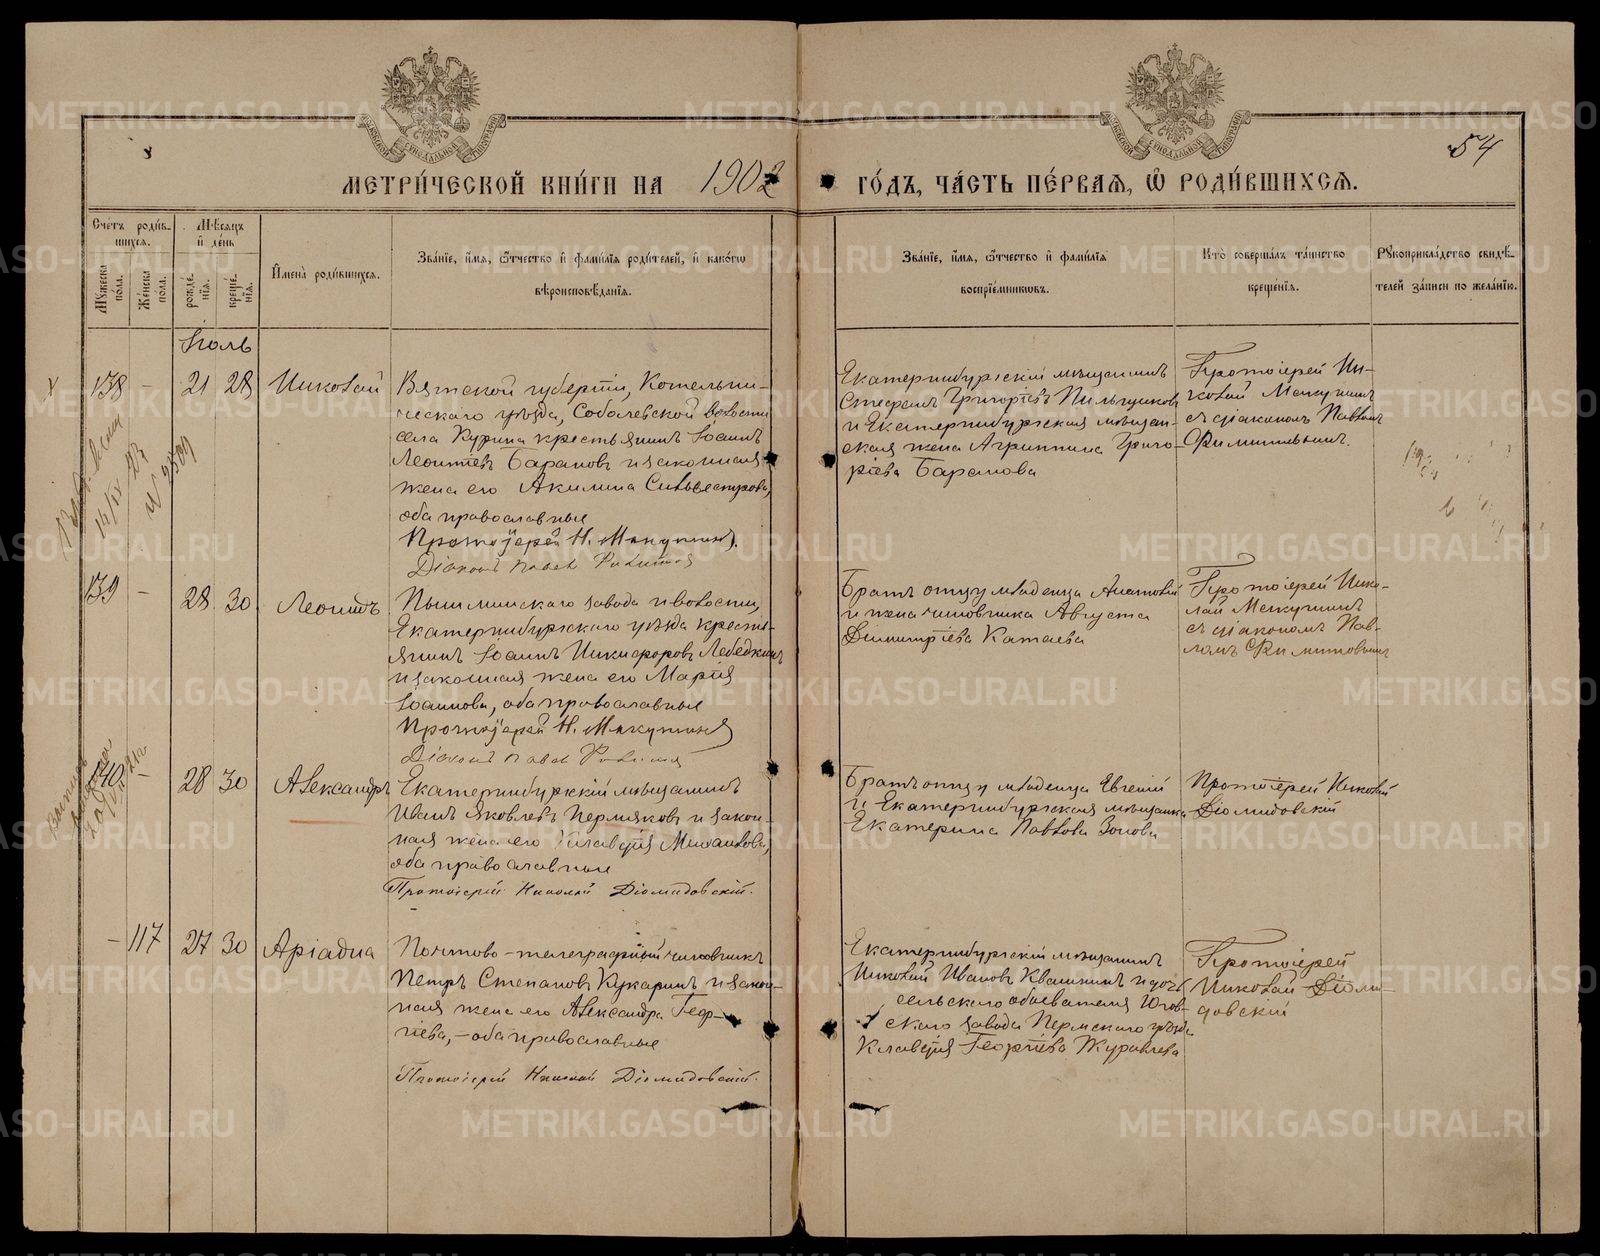 54
МЕТРИ́ЧЕСКОЙ КНИ́ГИ НА 1902 ГО́ДЪ, ЧА́СТЬ ПЕ́РВАЯ, Ѡ҆ РОДИ́ВШИХСЯ.
Сче́тъ роди́вшихся.
Мѣ́сяцъ и҆ де́нь
Мꙋ́жеска по́ла.
Же́нска по́ла.
рожде́нїя.
креще́нїя.
И҆мена̀ роди́вшихся.
Зва́нїе, и҆́мя, ѻ҆́тчество и҆ фамѝлїя роди́телей, и҆ како́гѡ
вѣроисповѣ́данїя.
Зва́нїе, и҆́мя, ѻ҆́тчество и҆ фамѝлїя
воспрїе́мникѡвъ.
Кто̀ соверша́лъ та́инство
креще́нїя.
Рꙋкоприкла́дство свидѣ́-
телей за́писи по жела́нїю.
Іюль
138 - 21 28 Николай
Вятской губерніи, Котельни-
ческаго уѣзда, Соболевской волости
села Курина крестьянинъ Іоаннъ
Леонтіевъ Барановъ и законная
жена его Акилина Сильвестрова,
оба православные
Протоіерей Н. Мякутинъ.
Діаконъ Павелъ
Екатеринбургскій мѣщанинъ
Стефанъ Григоріевъ Пильщиковъ
и Екатеринбургская мѣщан-
ская жена Агриппина Григо-
ріева Баранова
Протоіерей Ни-
колай Мякутинъ
съ діакономъ Павломъ
14/IX
N 2509
139 - 28 30 Леонидъ
Пышминскаго завода и волости,
Екатеринбургскаго уѣзда кресть-
янинъ Іоаннъ Никифоровъ Лебедкинъ
и законная жена его Марія
Іоаннова, оба православные
Протоіерей Н. Мякутинъ
Діаконъ Павелъ
Братъ отцу младенца Анатолій
и жена чиновника Августа
Димитріева Катаева
Протоіерей Нико-
лай Мякутинъ
съ діакономъ Пав-
ломъ
140 - 28 30 Александръ
Екатеринбургскій мѣщанинъ
Иванъ Яковлевъ Пермяковъ и закон-
ная жена его Клавдія Михаилова,
оба православные
Протоіерей Николай Діомидовскій.
Братъ отцу младенца Евгеній
и Екатеринбургская мѣщанка
Екатерина Павлова Зонова
Протоіерей Николай
Діомидовскій
- 117 27 30 Аріадна
Почтово-телеграфный чиновникъ
Петръ Степановъ Кукаринъ и закон-
ная жена его Александра Геор-
гіева, - оба православные
Протоіерей Николай Діомидовскій.
Екатеринбургскій мѣщанинъ
Николай Ивановъ Квашнинъ и дочь
сельскаго обывателя Югов-
скаго завода Пермскаго уѣзда
Клавдія Георгіева Журавлева
Протоіерей
Николай Діоми-
довскій
METRIKI.GASO-URAL.RU